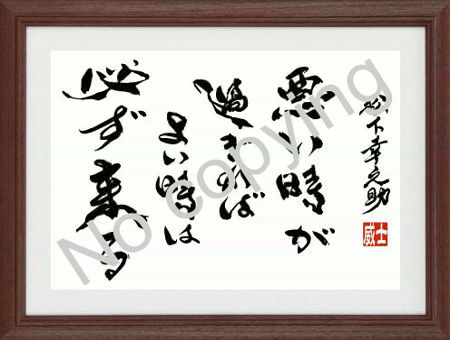 松下幸之助
悪い時が
過ぎれば
よい時は
必ず来る
威士
No copying